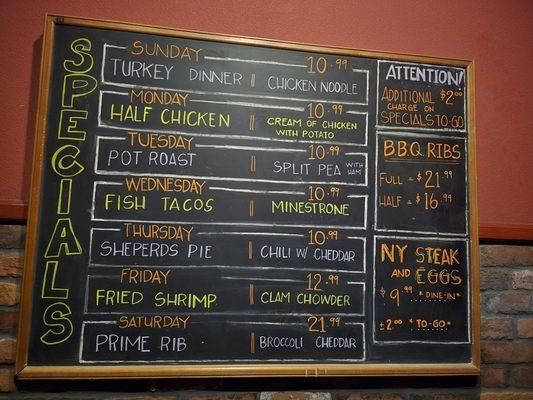 SPECIALS
SUNDAY 10.99
TURKEY DINNER | CHICKEN NOODLE
MONDAY 10.99
HALF CHICKEN | CREAM OF CHICKEN
WITH POTATO
TUESDAY 10.99
POT ROAST | SPLIT PEA WITH HAM
WEDNESDAY 10.99
FISH TACOS | MINESTRONE
THURSDAY 10.99
SHEPERDS PIE | CHILI W/ CHEDDAR
FRIDAY 12.99
FRIED SHRIMP | CLAM CHOWDER
SATURDAY 21.99
PRIME RIB | BROCCOLI CHEDDAR
ATTENTION!
ADDITIONAL $2.00
CHARGE ON
SPECIALS TO-GO
BBQ RIBS
FULL = $21.99
HALF = $16.99
NY STEAK
AND EGGS
$9.99 *DINE-IN*
±2.00 *TO-GO*